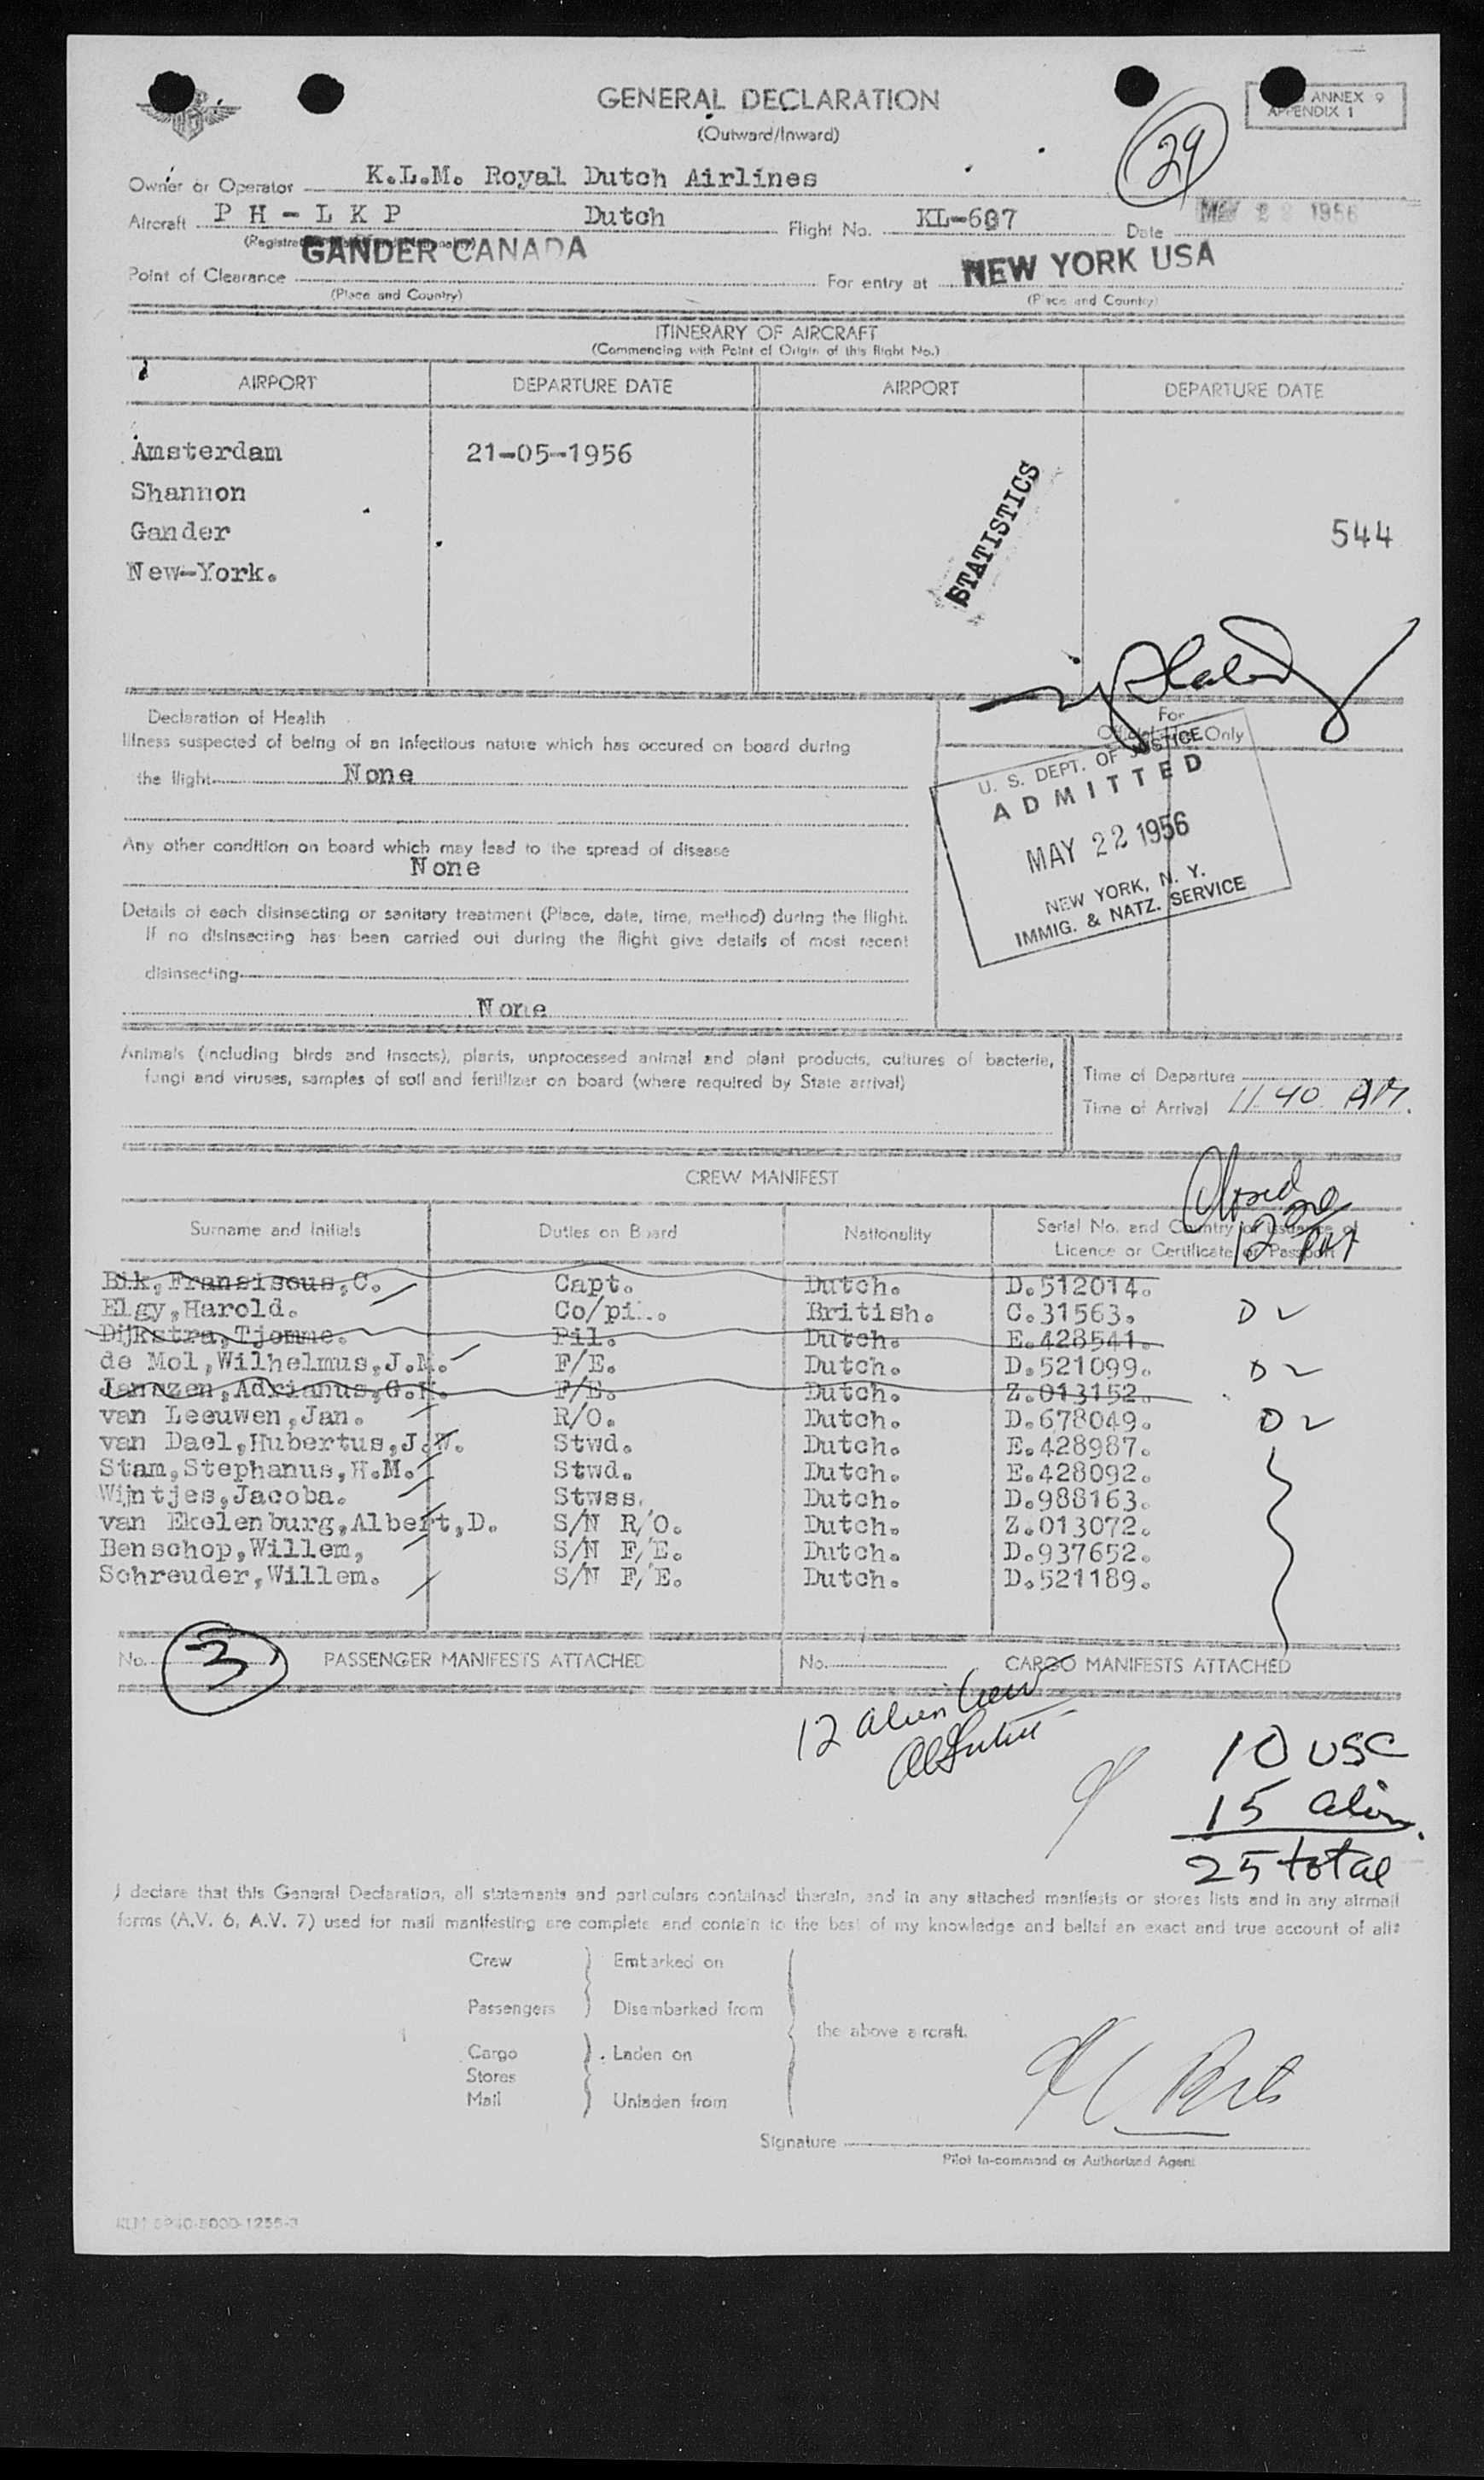 GENERAL DECLARATION
(Outward/Inward)
ANNEX 9
APPENDIX 1
29
Owner or Operator K.L.M. Royal Dutch Airlines
Aircraft P H - L K P Dutch Flight No. KL-607 Date MAY 22 1956
GANDER CANADA
Point of Clearance For entry at NEW YORK USA
(Place and Country) (Place and Country)
ITINERARY OF AIRCRAFT
(Commencing with Point of Origin of this flight No.)
AIRPORT DEPARTURE DATE AIRPORT DEPARTURE DATE
Amsterdam 21-05-1956
Shannon
Gander 544
New-York.
STATISTICS
Declaration of Health
Illness suspected of being of an infectious nature which has occured on board during
the flight None
Any other condition on board which may lead to the spread of disease
None
Details of each disinsecting or sanitary treatment (Place, date, time, method) during the flight.
If no disinsecting has been carried out during the flight give details of most recent
disinsecting
None
For
Official Use Only
U. S. DEPT. OF JUSTICE
ADMITTED
MAY 22 1956
NEW YORK, N. Y.
IMMIG. & NATZ. SERVICE
Animals (including birds and insects), plants, unprocessed animal and plant products, cultures of bacterie,
fungi and viruses, samples of soil and fertilizer on board (where required by State arrival)
Time of Departure
Time of Arrival 11 40 AM.
CREW MANIFEST
Surname and Initials Duties on Board Nationality Serial No. and Country of issuance of
Licence or Certificate or Passport
Bik,Fransiscus,C. Capt. Dutch. D.512014.
Elgy,Harold. Co/pil. British. C.31563.
Dijkstra,Tjomme. Pil. Dutch. E.428541.
de Mol,Wilhelmus,J.M. F/E. Dutch. D.521099.
Janszen,Adrianus,G.H. F/E. Dutch. Z.013152.
van Leeuwen,Jan. R/O. Dutch. D.678049.
van Dael,Hubertus,J.W. Stwd. Dutch. E.428987.
Stam,Stephanus,H.M. Stwd. Dutch. E.428092.
Wijntjes,Jacoba. Stwss. Dutch. D.988163.
van Ekelenburg,Albert,D. S/N R/O. Dutch. Z.013072.
Benschop,Willem, S/N F/E. Dutch. D.937652.
Schreuder,Willem. S/N F/E. Dutch. D.521189.
No. 3 PASSENGER MANIFESTS ATTACHED No. CARGO MANIFESTS ATTACHED
12 alien Crew
10 USC
15 alien
25 total
I declare that this General Declaration, all statements and particulars contained therein, and in any attached manifests or stores lists and in any airmail
forms (A.V. 6, A.V. 7) used for mail manifesting are complete and contain to the best of my knowledge and belief an exact and true account of all:
Crew Embarked on
Passengers Disembarked from
the above aircraft.
Cargo Laden on
Stores
Mail Unladen from
Signature
Pilot in-command or Authorized Agent